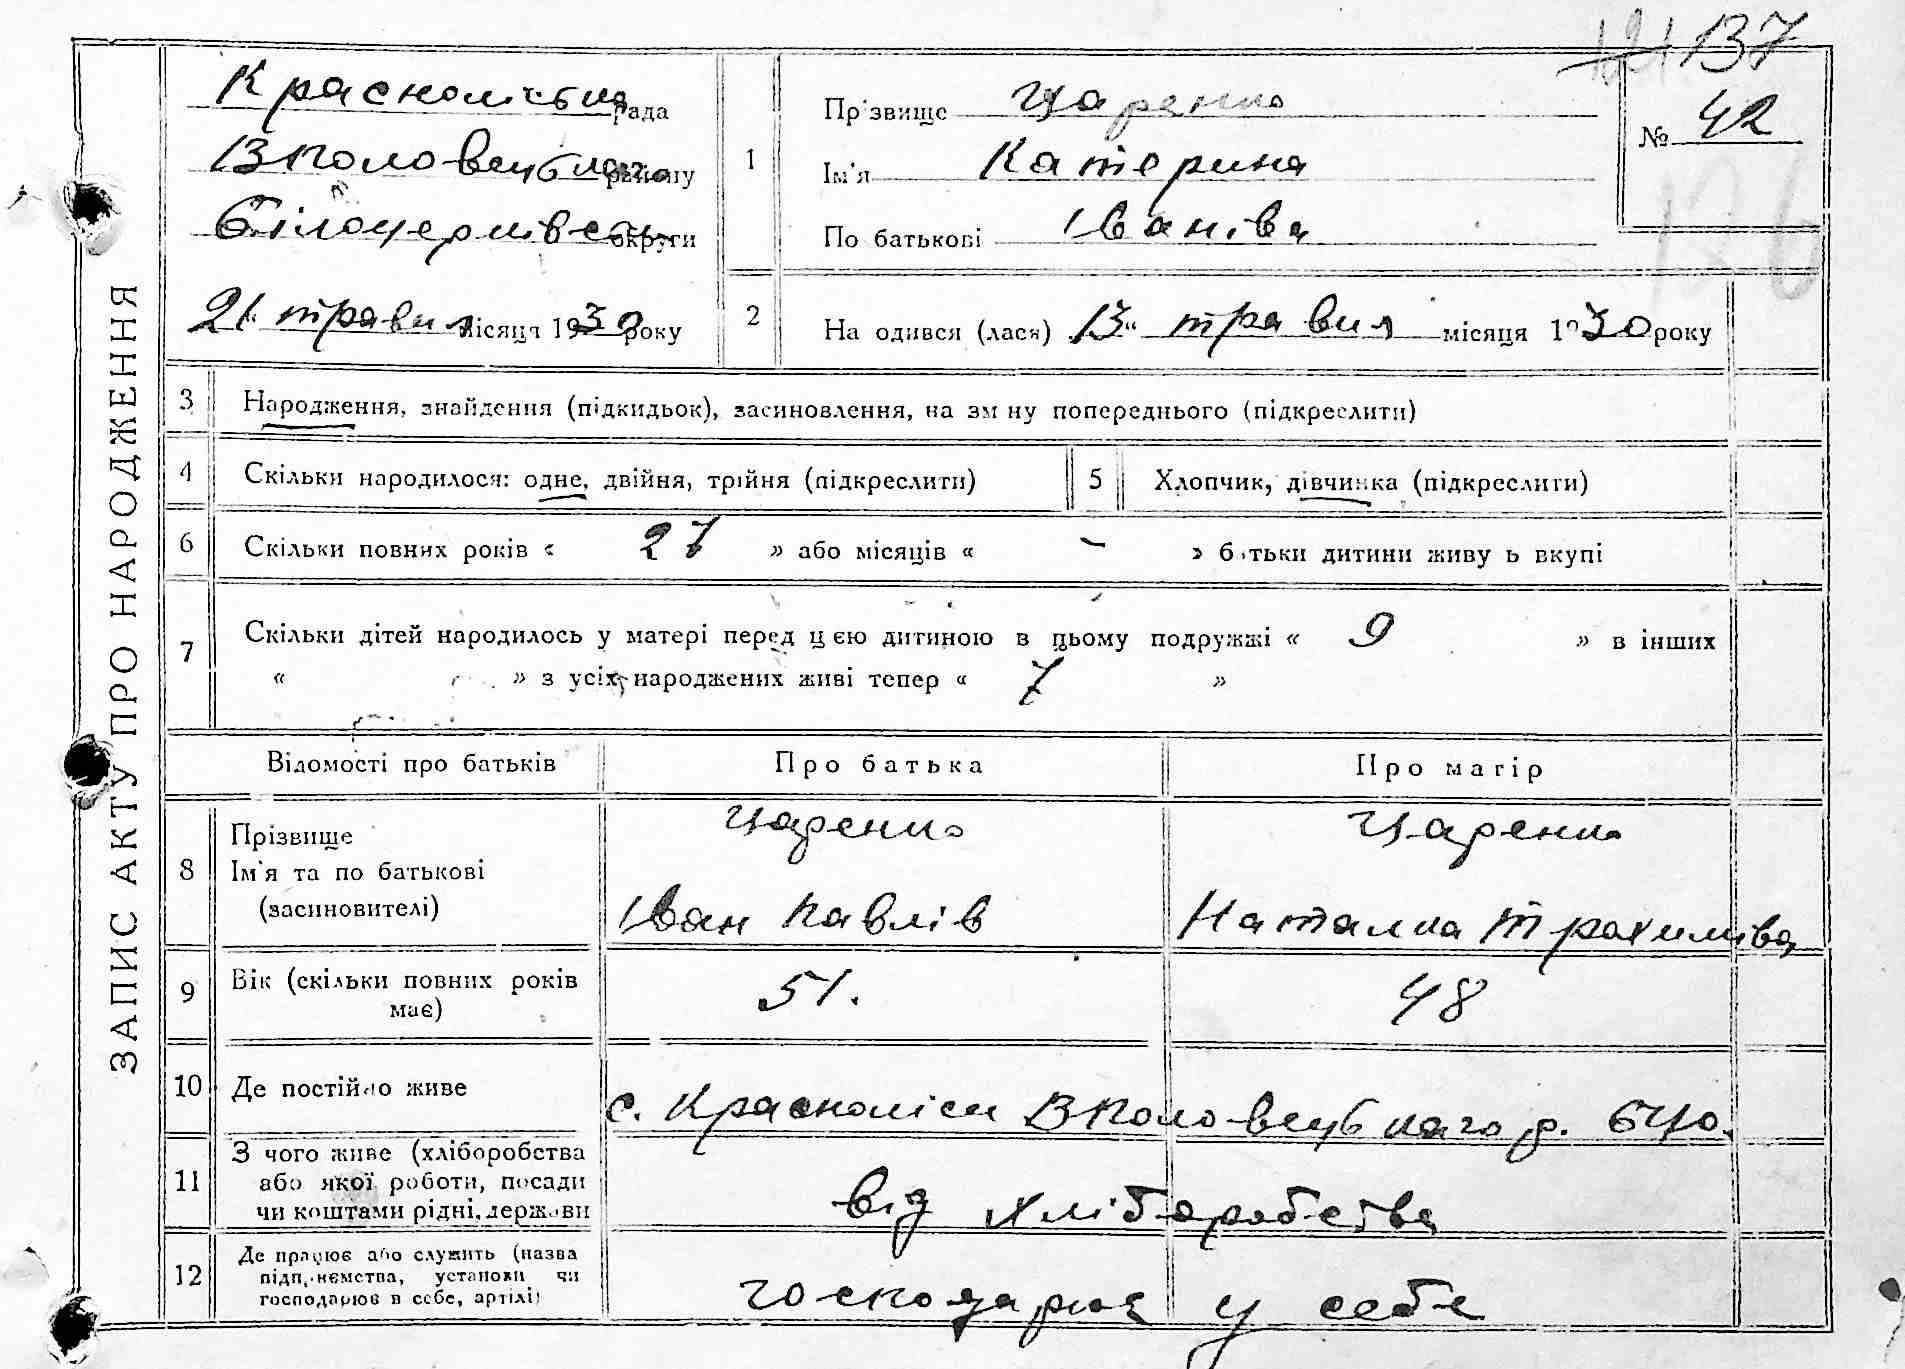 121 137
Красноліська рада
Вполовецького району
Білоцерківськ округи
21 „ травня місяця 1930 року
1
Прізвище Царенко
Ім'я Катерина
По батькові Іванівна
№ 42
126
2
На одився (лася) 13 „ травня місяця 1930 року
ЗАПИС АКТУ ПРО НАРОДЖЕННЯ
3 Народження, знайдення (підкидьок), засиновлення, на зм ну попереднього (підкреслити)
4 Скільки народилося: одне, двійня, трійня (підкреслити) 5 Хлопчик, дівчинка (підкреслити)
6 Скільки повних років « 27 » або місяців « – » батьки дитини живу ь вкупі
7 Скільки дітей народилось у матері перед цією дитиною в цьому подружжі « 9 » в інших
« » з усіх народжених живі тепер « 7 »
Відомості про батьків Про батька Про матір
8 Прізвище
Ім'я та по батькові
(засиновителі)
Царенко
Іван Павлів
Царенко
Наталка Трохиміва
9 Вік (скільки повних років
має)
51. 48
10 Де постійно живе с. Красноліси Вполовецького р. БЦо.
11 З чого живе (хліборобства
або якої роботи, посади
чи коштами рідні, держави
від хліборобства
12 Де працює або служить (назва
підприємства, установи чи
господарює в себе, артілі)
господарює у себе